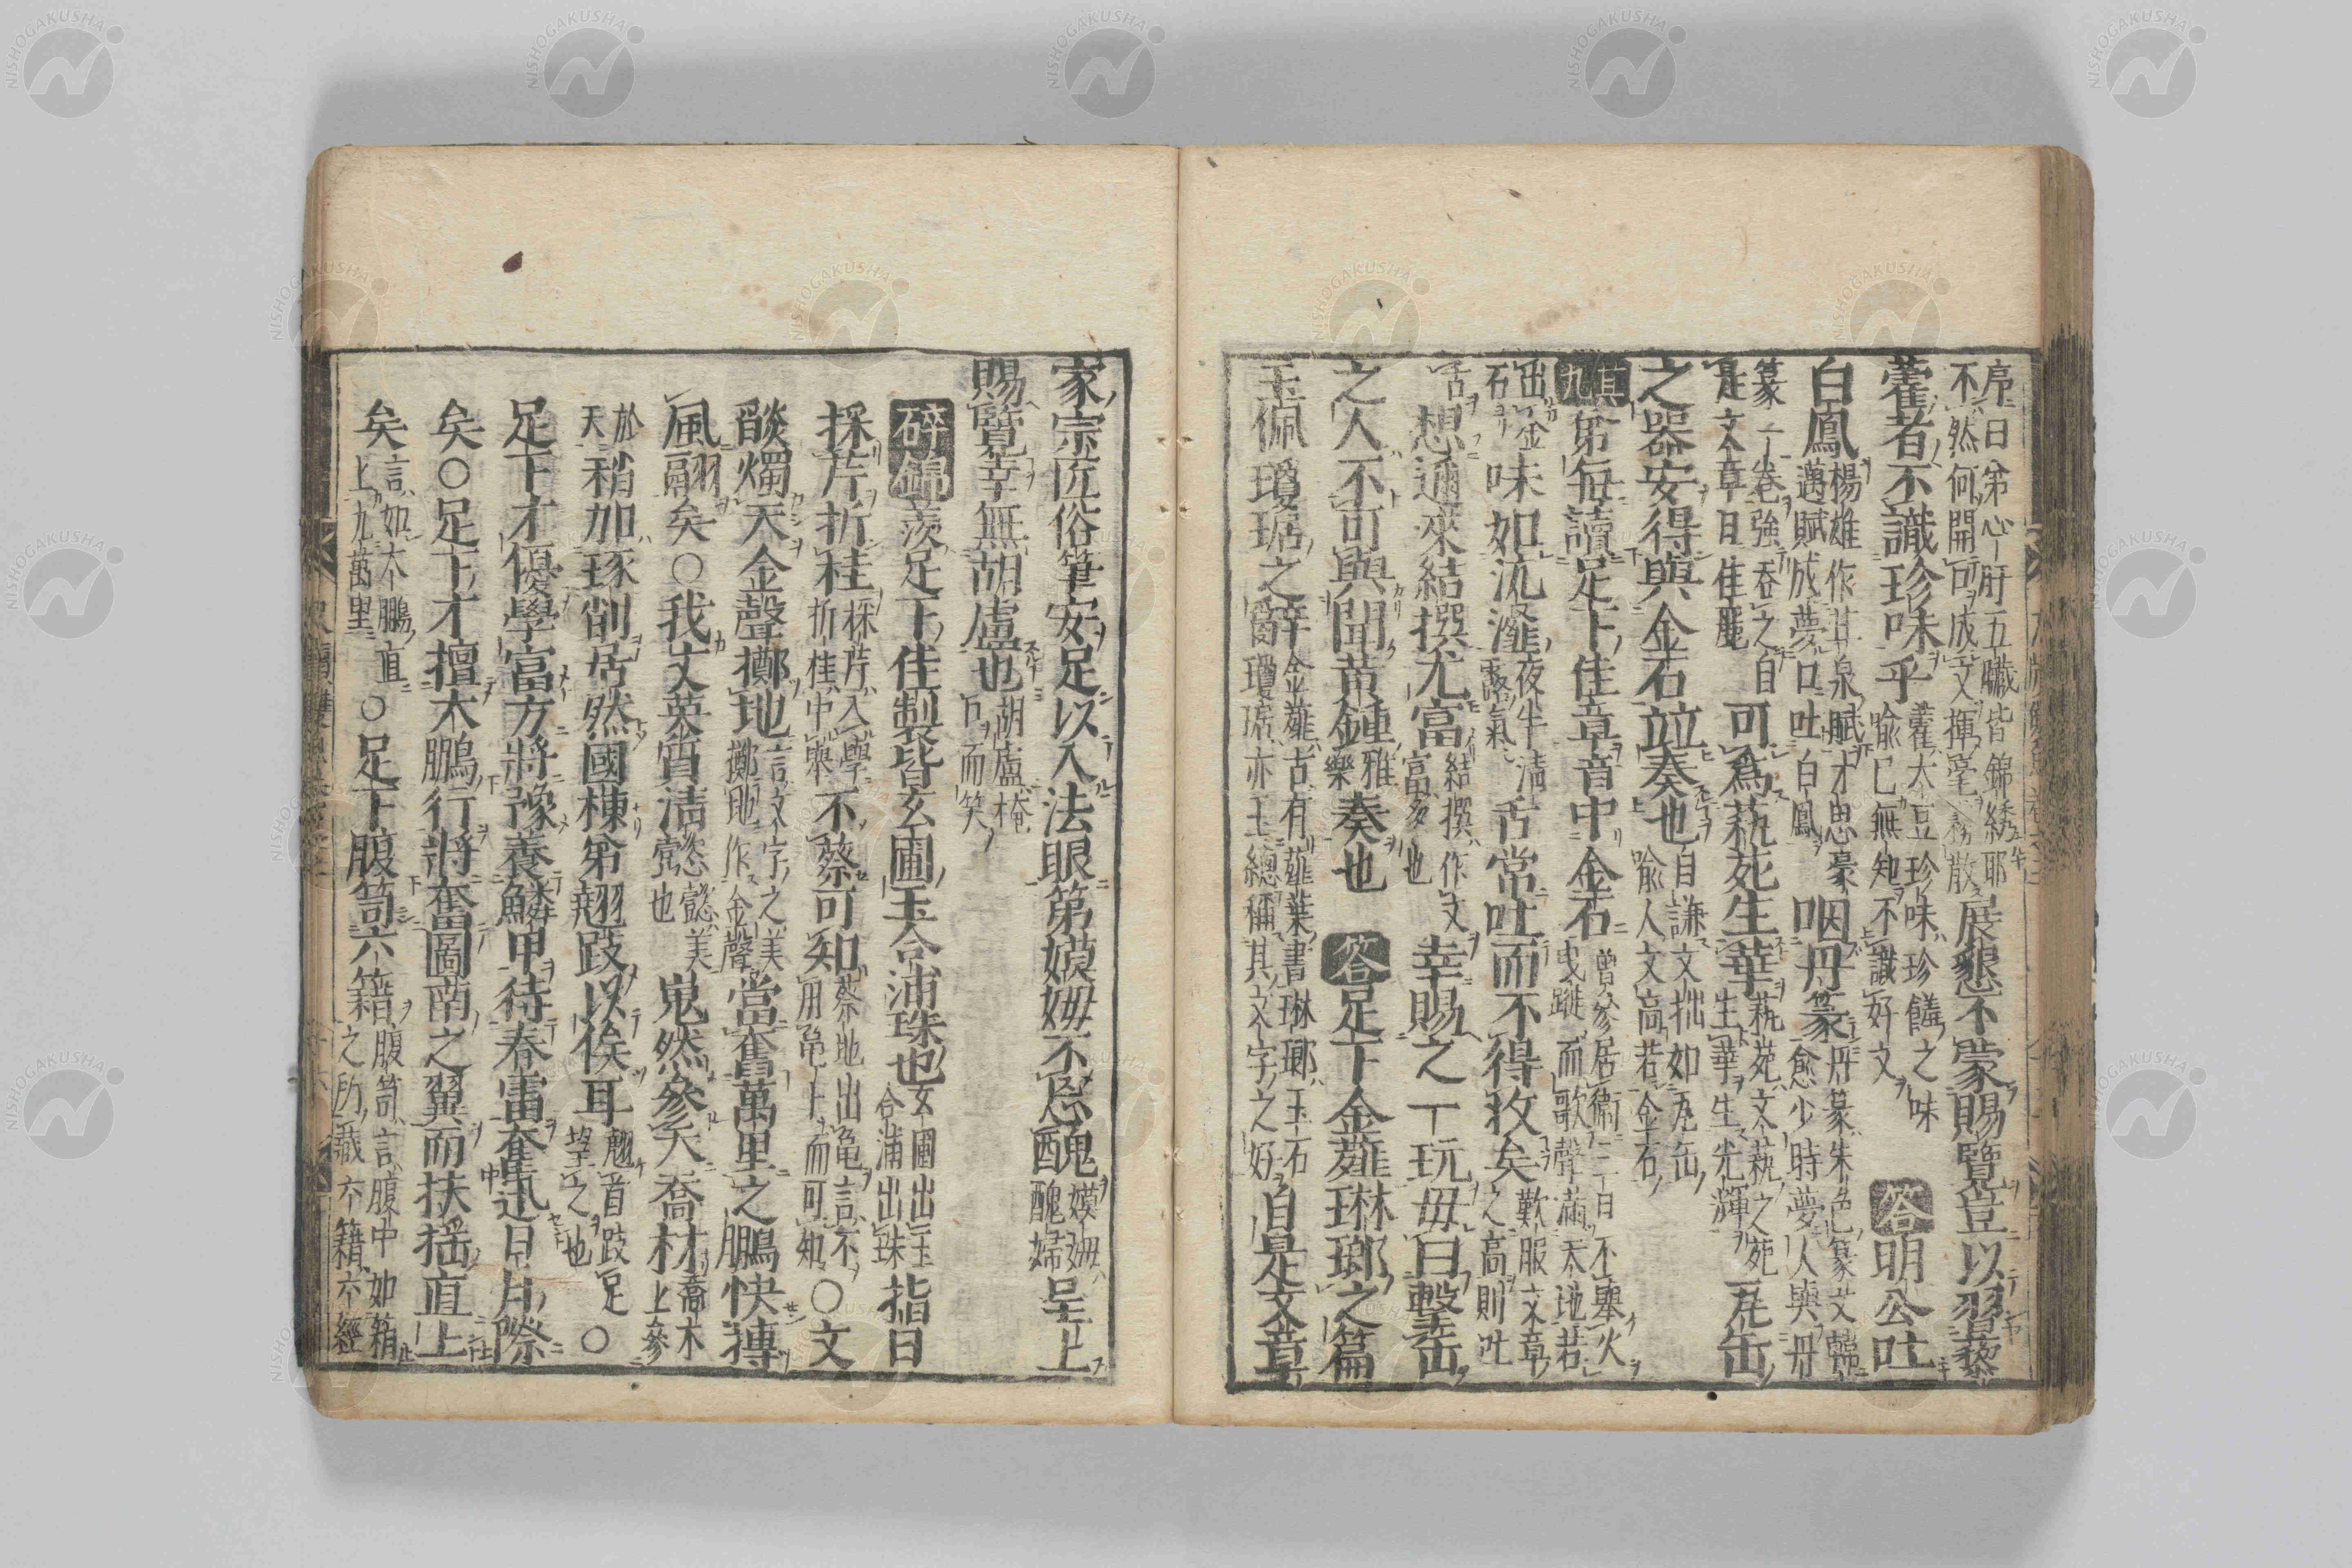 序曰弟心肝五臟皆錦綉耶
不然何開口成文揮毫霧散
展懇不蒙賜覽豈以習藜
藿者不識珍味乎
藿大豆珍味珍饈之味
喻己無知不識好文
答明公吐
白鳳
楊雄作甘泉賦才思豪
邁賦成夢口吐白鳳
咽丹篆
丹篆朱色篆文韓
愈少時夢人與丹
篆一卷強吞之自
是文章日佳麗
可為萟苑生華
萟苑文萟之苑
生華生光輝
瓦缶
之器安得與金石竝奏也
自謙文拙如瓦缶
喻人文高若金石
其九
第每讀足下佳章音中金石
曾參居衛三日不舉火
曳蹝而歌聲滿天地若
出金
石
味如沆瀣
夜半清
露氣
舌常吐而不得收矣
歎服文章
之高則吐
舌
想邇來結撰尤富
結撰作文
富多也
幸賜之一玩毋曰擊缶
之人不可與聞黃鍾
雅
樂
奏也
答足下金薤琳瑯之篇
玉佩瓊琚之辭
金薤古有薤葉書琳瑯玉石
瓊琚亦玉總稱其文字之好
自是文章
家宗匠俗筆安足以入法眼第嫫姆不忘醜
嫫姆
醜婦
呈上
賜覽幸無胡盧也
胡盧掩
口而笑
碎錦
羨足下佳製皆玄圃玉合浦珠也
玄圃出玉
合浦出珠
指日
採芹折桂
採芹入學
折桂中舉
不蔡可知
蔡地出龜言不
用龜卜而可知
○文
燄燭天金聲擲地
言文字之美
擲地作金聲
當奮萬里之鵬快摶
風翮矣○我丈英質清
懿美
也
嵬然參天喬材
喬木
上參
於
天
稍加琢削居然國棟第翹跂以俟耳
翹首跂足
望之也
○
足下才優學富方將豫養鱗甲待春雷奮迅日月際
矣○足下才擅大鵬行將奮圖南之翼而扶搖直上
矣
言如大鵬直
上九萬里
○足下腹笥六籍
腹笥言腹中如箱
之所藏六籍六經